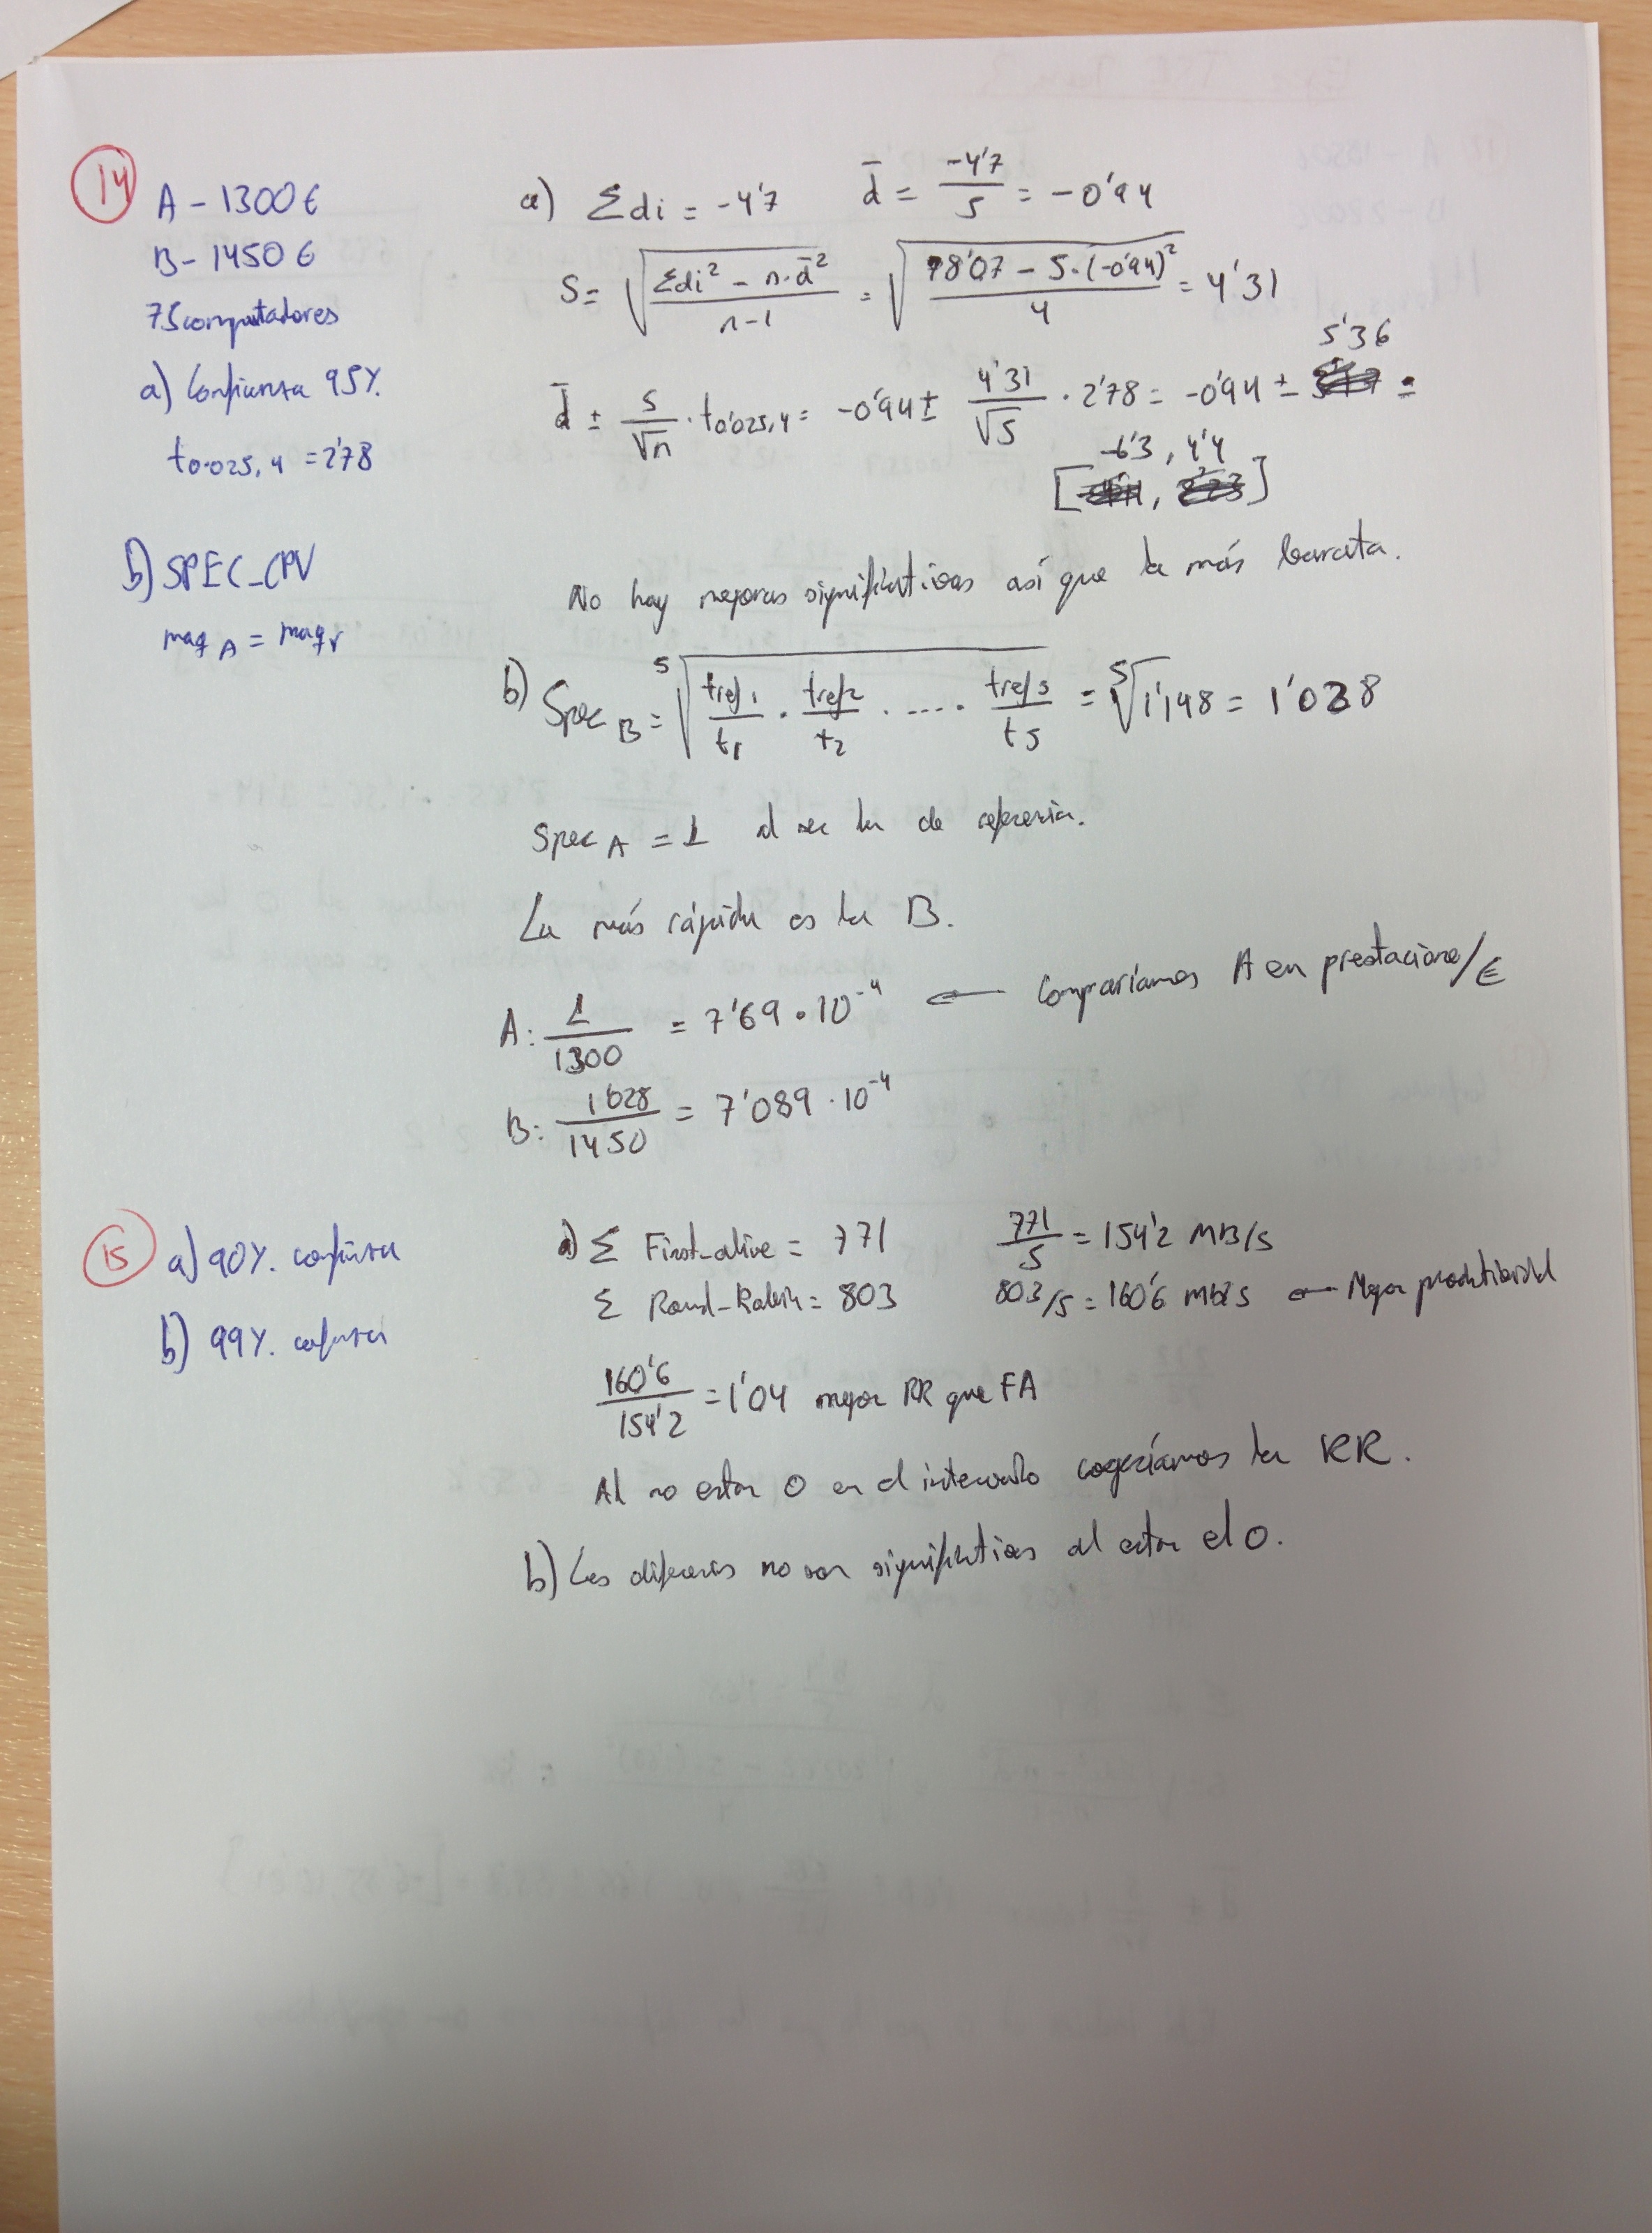 14
A - 1300€
B - 1450€
75 computadores
a) Confianza 95%.
t0.025,4 = 2'78
a) Σdi = -4'7 d̄ = -4'7/5 = -0'94
S = √((Σdi² - n·d̄²)/(n-1)) = √((78'07 - 5·(-0'94)²)/4) = 4'31
d̄ ± s/√n · t0'025,4 = -0'94 ± 4'31/√5 · 2'78 = -0'94 ± 5'36 =
[-6'3, 4'4]
No hay mejoras significativas así que la más barata.
b) SPEC_CPU
maq A = maq r
b) Spec B = ⁵√(tref1/t1 · tref2/t2 · .... · tref5/t5) = ⁵√1'148 = 1'028
Spec A = 1 al ser la de referencia.
La más rápida es la B.
A: 1/1300 = 7'69·10⁻⁴ ← Compraríamos A en prestacione/€
B: 1'028/1450 = 7'089·10⁻⁴
15
a) 90%. confianza
b) 99%. confianza
a) Σ First_alive = 771 771/5 = 154'2 MB/s
Σ Round_Robin = 803 803/5 = 160'6 MB/s ← Mejor productividad
160'6/154'2 = 1'04 mejor RR que FA
Al no estar 0 en el intervalo cogeríamos la RR.
b) Las diferencias no son significativas al estar el 0.